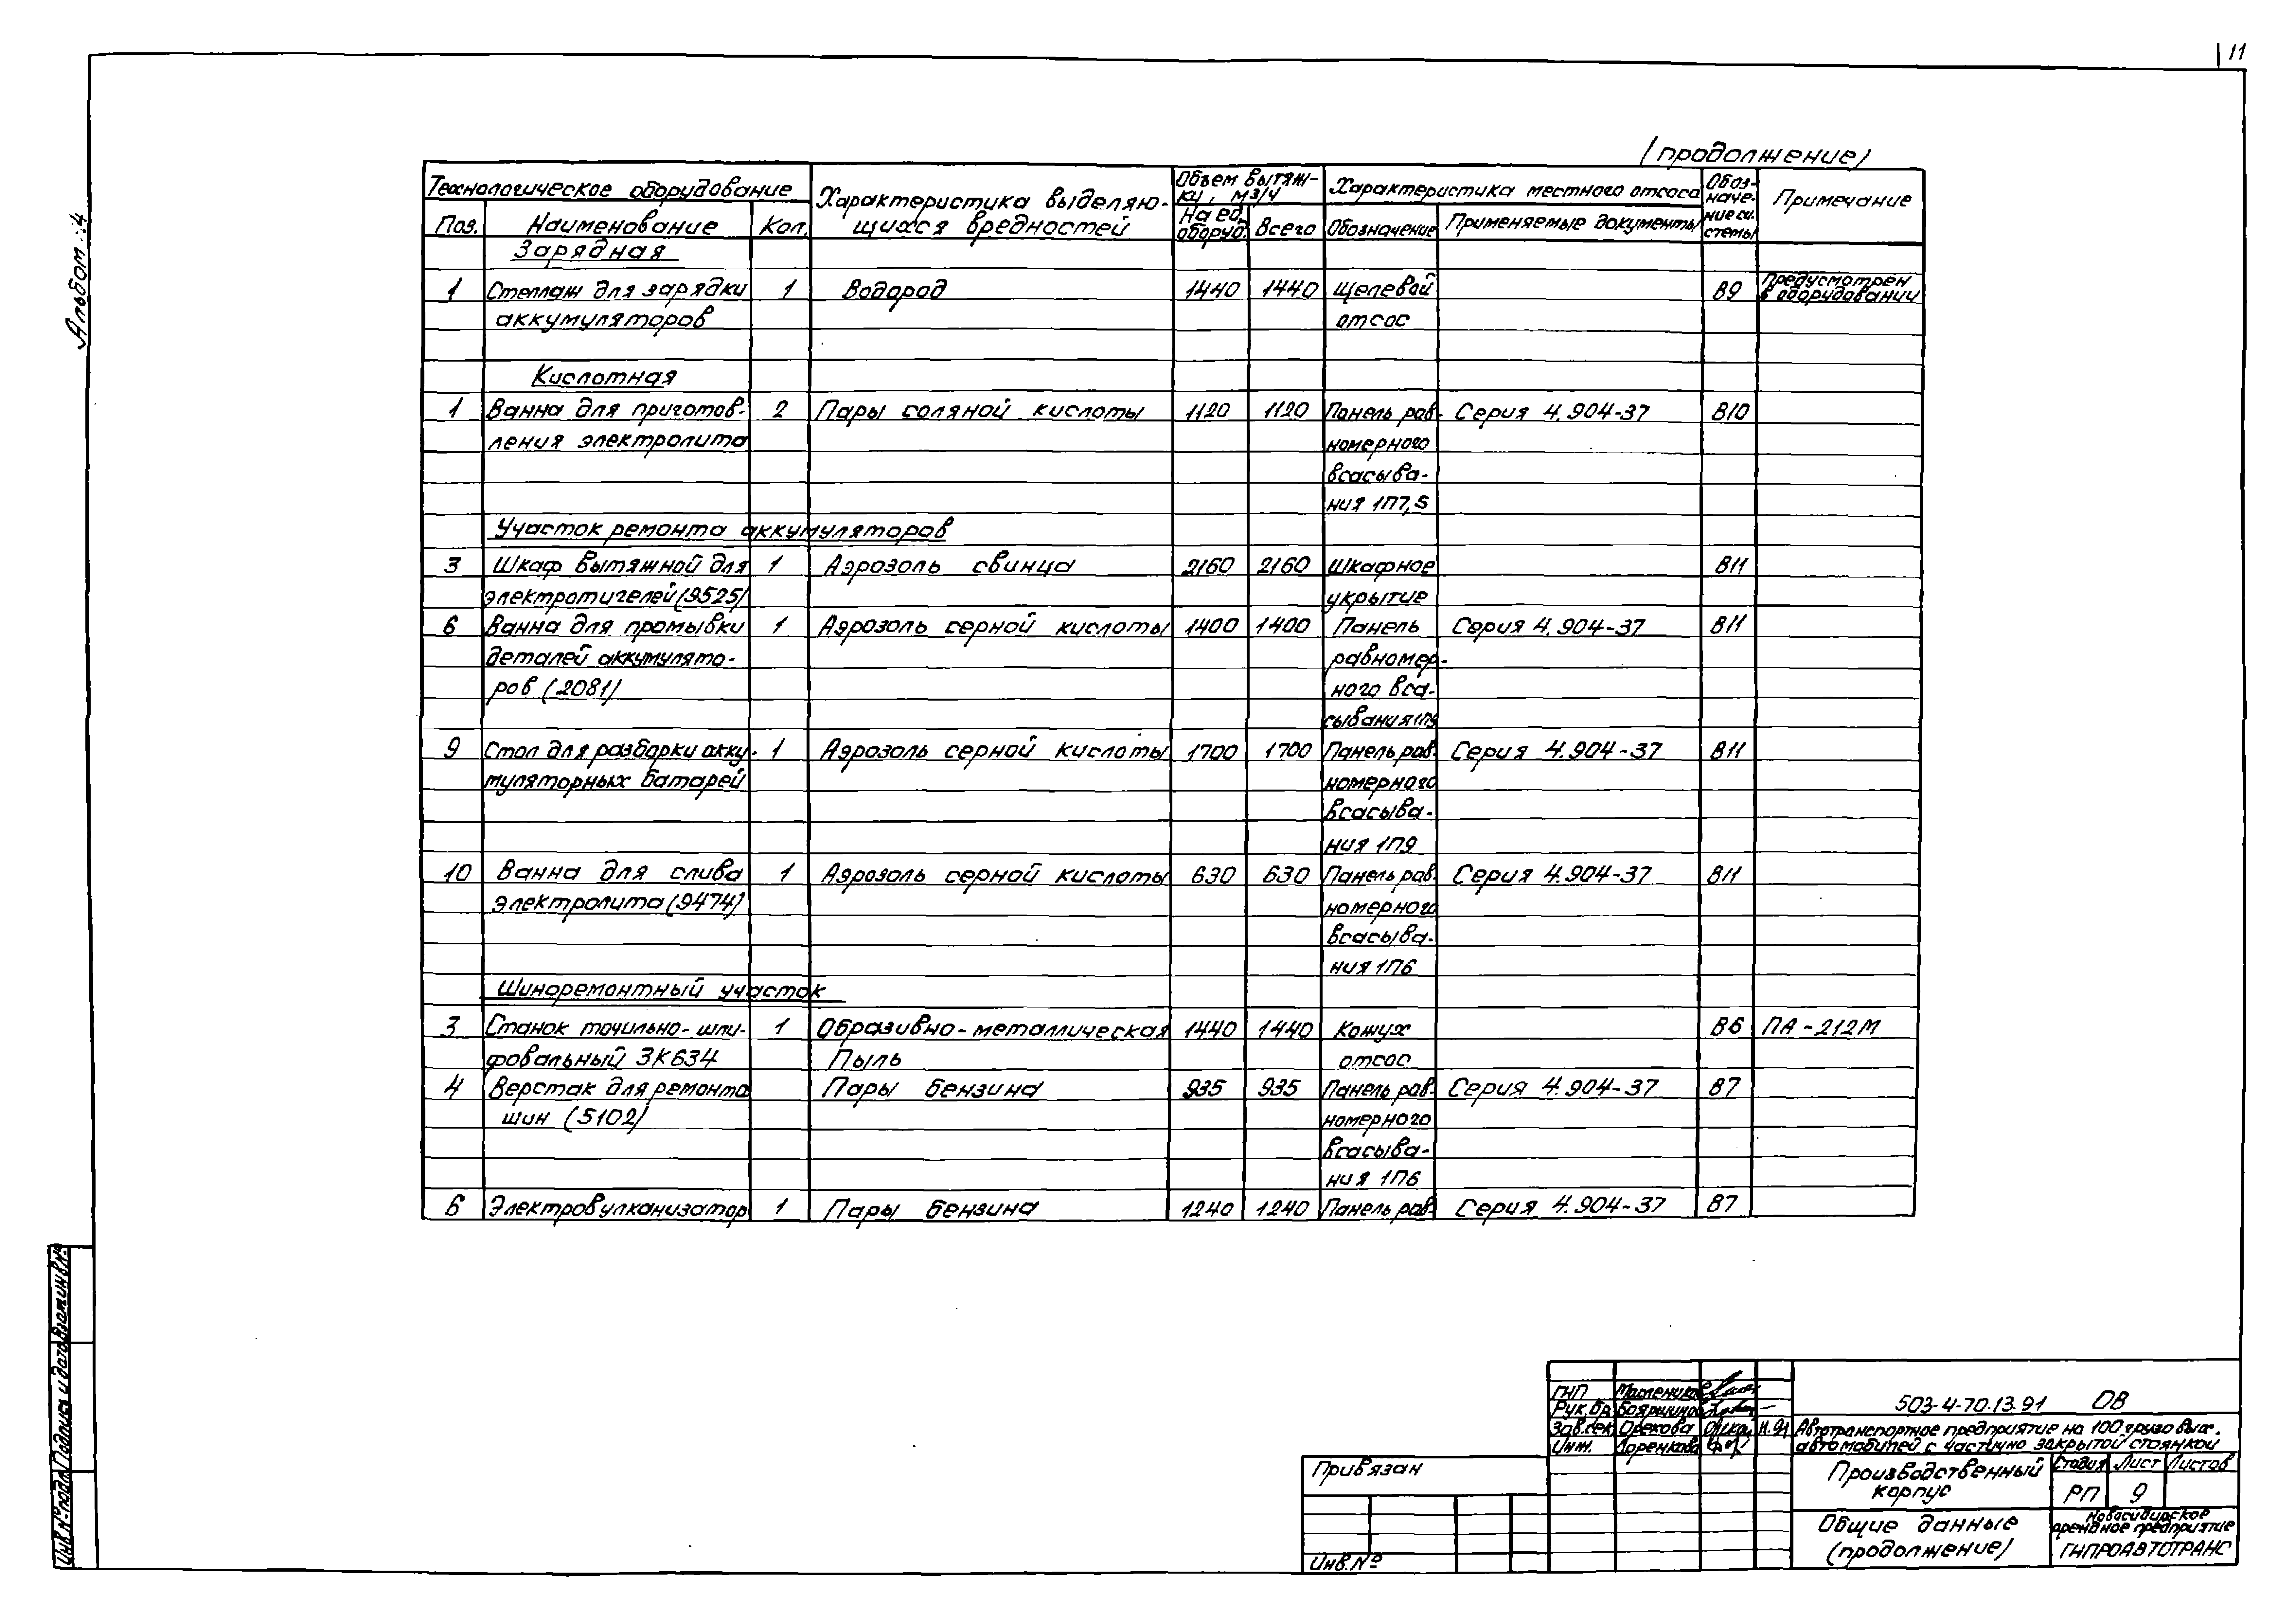 11
Альбом 4
(продолжение)
Технологическое оборудование
Характеристика выделяю-
щихся вредностей
Объем вытяж-
ки, м3/ч
Характеристика местного отсоса
Обоз-
наче-
ние си-
стемы
Примечание
Поз. Наименование Кол. На ед. оборуд. Всего Обозначение Применяемые документы
Зарядная
1 Стеллаж для зарядки 1 Водород 1440 1440 Щелевой В9 Предусмотрен
в оборудовании
аккумуляторов отсос
Кислотная
1 Ванна для приготов- 2 Пары соляной кислоты 1120 1120 Панель рав- Серия 4.904-37 В10
ления электролита номерного
всасыва-
ния 1П7,5
Участок ремонта аккумуляторов
3 Шкаф вытяжной для 1 Аэрозоль свинца 2160 2160 Шкафное В11
электротигелей (9525) укрытие
6 Ванна для промывки 1 Аэрозоль серной кислоты 1400 1400 Панель Серия 4.904-37 В11
деталей аккумулято- равномер-
ров (2081) ного вса-
сывания 1П9
9 Стол для разборки акку- 1 Аэрозоль серной кислоты 1700 1700 Панель рав- Серия 4.904-37 В11
муляторных батарей номерного
всасыва-
ния 1П9
10 Ванна для слива 1 Аэрозоль серной кислоты 630 630 Панель рав- Серия 4.904-37 В11
электролита (9474) номерного
всасыва-
ния 1П6
Шиноремонтный участок
3 Станок точильно-шли- 1 Образивно-металлическая 1440 1440 Кожух В6 ПА-212М
фовальный 3К634 Пыль отсос
4 Верстак для ремонта Пары бензина 935 935 Панель рав- Серия 4.904-37 В7
шин (5102) номерного
всасыва-
ния 1П6
6 Электровулканизатор 1 Пары бензина 1240 1240 Панель рав- Серия 4.904-37 В7
Инв.№ подл. Подпись и дата Взам.инв.№
ГИП
Рук.бр. Бояршинов
Зав.сек. Орехова 11.91
Инж.
503-4-70.13.91 ОВ
Автотранспортное предприятие на 100 грузовых
автомобилей с частично закрытой стоянкой
Привязан
Инв.№
Производственный
корпус
Стадия Лист Листов
РП 9
Общие данные
(продолжение)
Новосибирское
арендное предприятие
ГИПРОАВТОТРАНС